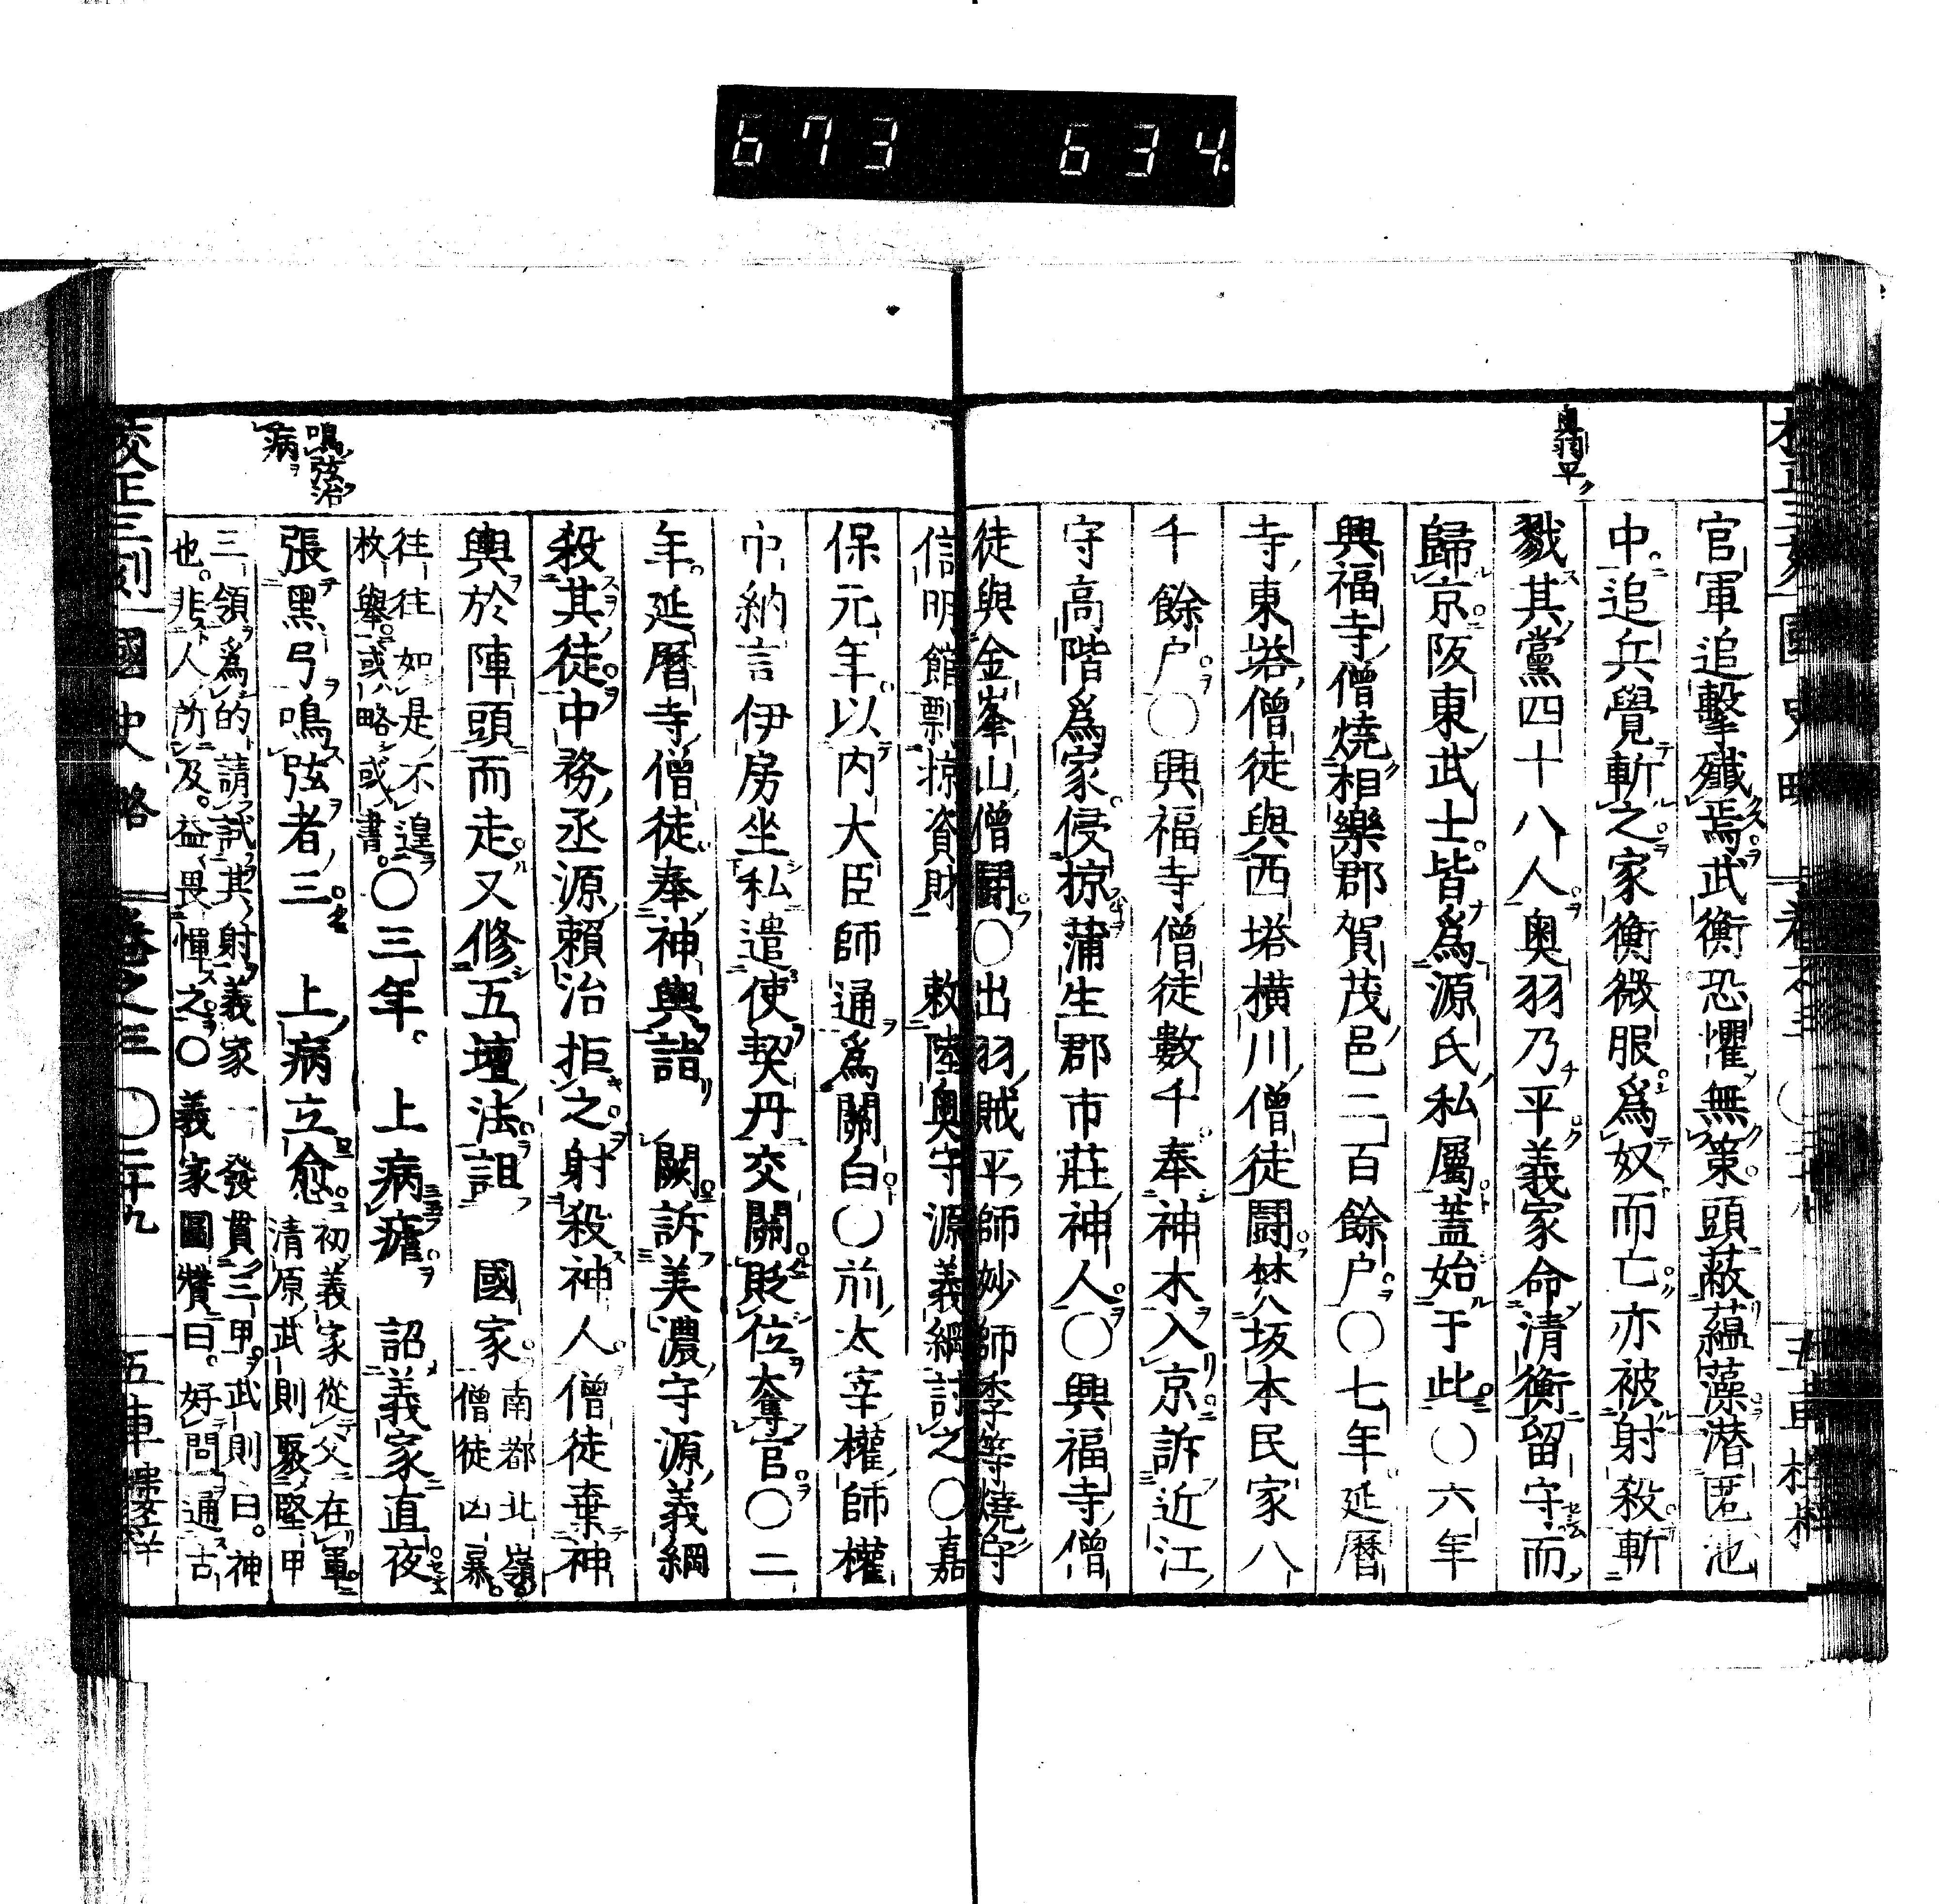 673 634.
奥羽平
官軍追擊殲焉武衡恐懼無策頭蔽蘊藻潜匿池
中追兵覺斬之家衡微服爲奴而亡亦被射殺斬
戮其黨四十八人奥羽乃平義家命清衡留守而
歸京阪東武士皆爲源氏私屬蓋始于此〇六年
興福寺僧燒相樂郡賀茂邑二百餘户〇七年延曆
寺東塔僧徒與西塔横川僧徒鬪焚坂本民家八
千餘户〇興福寺僧徒數千奉神木入京訴近江
守高階爲家侵掠蒲生郡市莊神人〇興福寺僧
徒與金峯山僧鬪〇出羽賊平師妙師季等燒守
信明館剽掠資財 敕陸奥守源義綱討之〇嘉
保元年以内大臣師通爲關白〇前太宰權師權
中納言伊房坐私遣使契丹交關貶位奪官〇二
年延曆寺僧徒奉神輿詣 闕訴美濃守源義綱
殺其徒中務丞源賴治拒之射殺神人僧徒棄神
輿於陣頭而走又修五壇法詛 國家南都北嶺
僧徒凶暴
往往如是不遑
枚舉或略或書〇三年 上病瘧 詔義家直夜
鳴弦治
病
張黑弓鳴弦者三 上病立愈初義家從父在軍
清原武則聚堅甲
三領爲的請試其射義家一發貫三甲武則曰神
也非人所及益畏憚之〇義家圖贊曰好問通古
校正三刻國史略 卷之三 〇二十九 五車樓梓